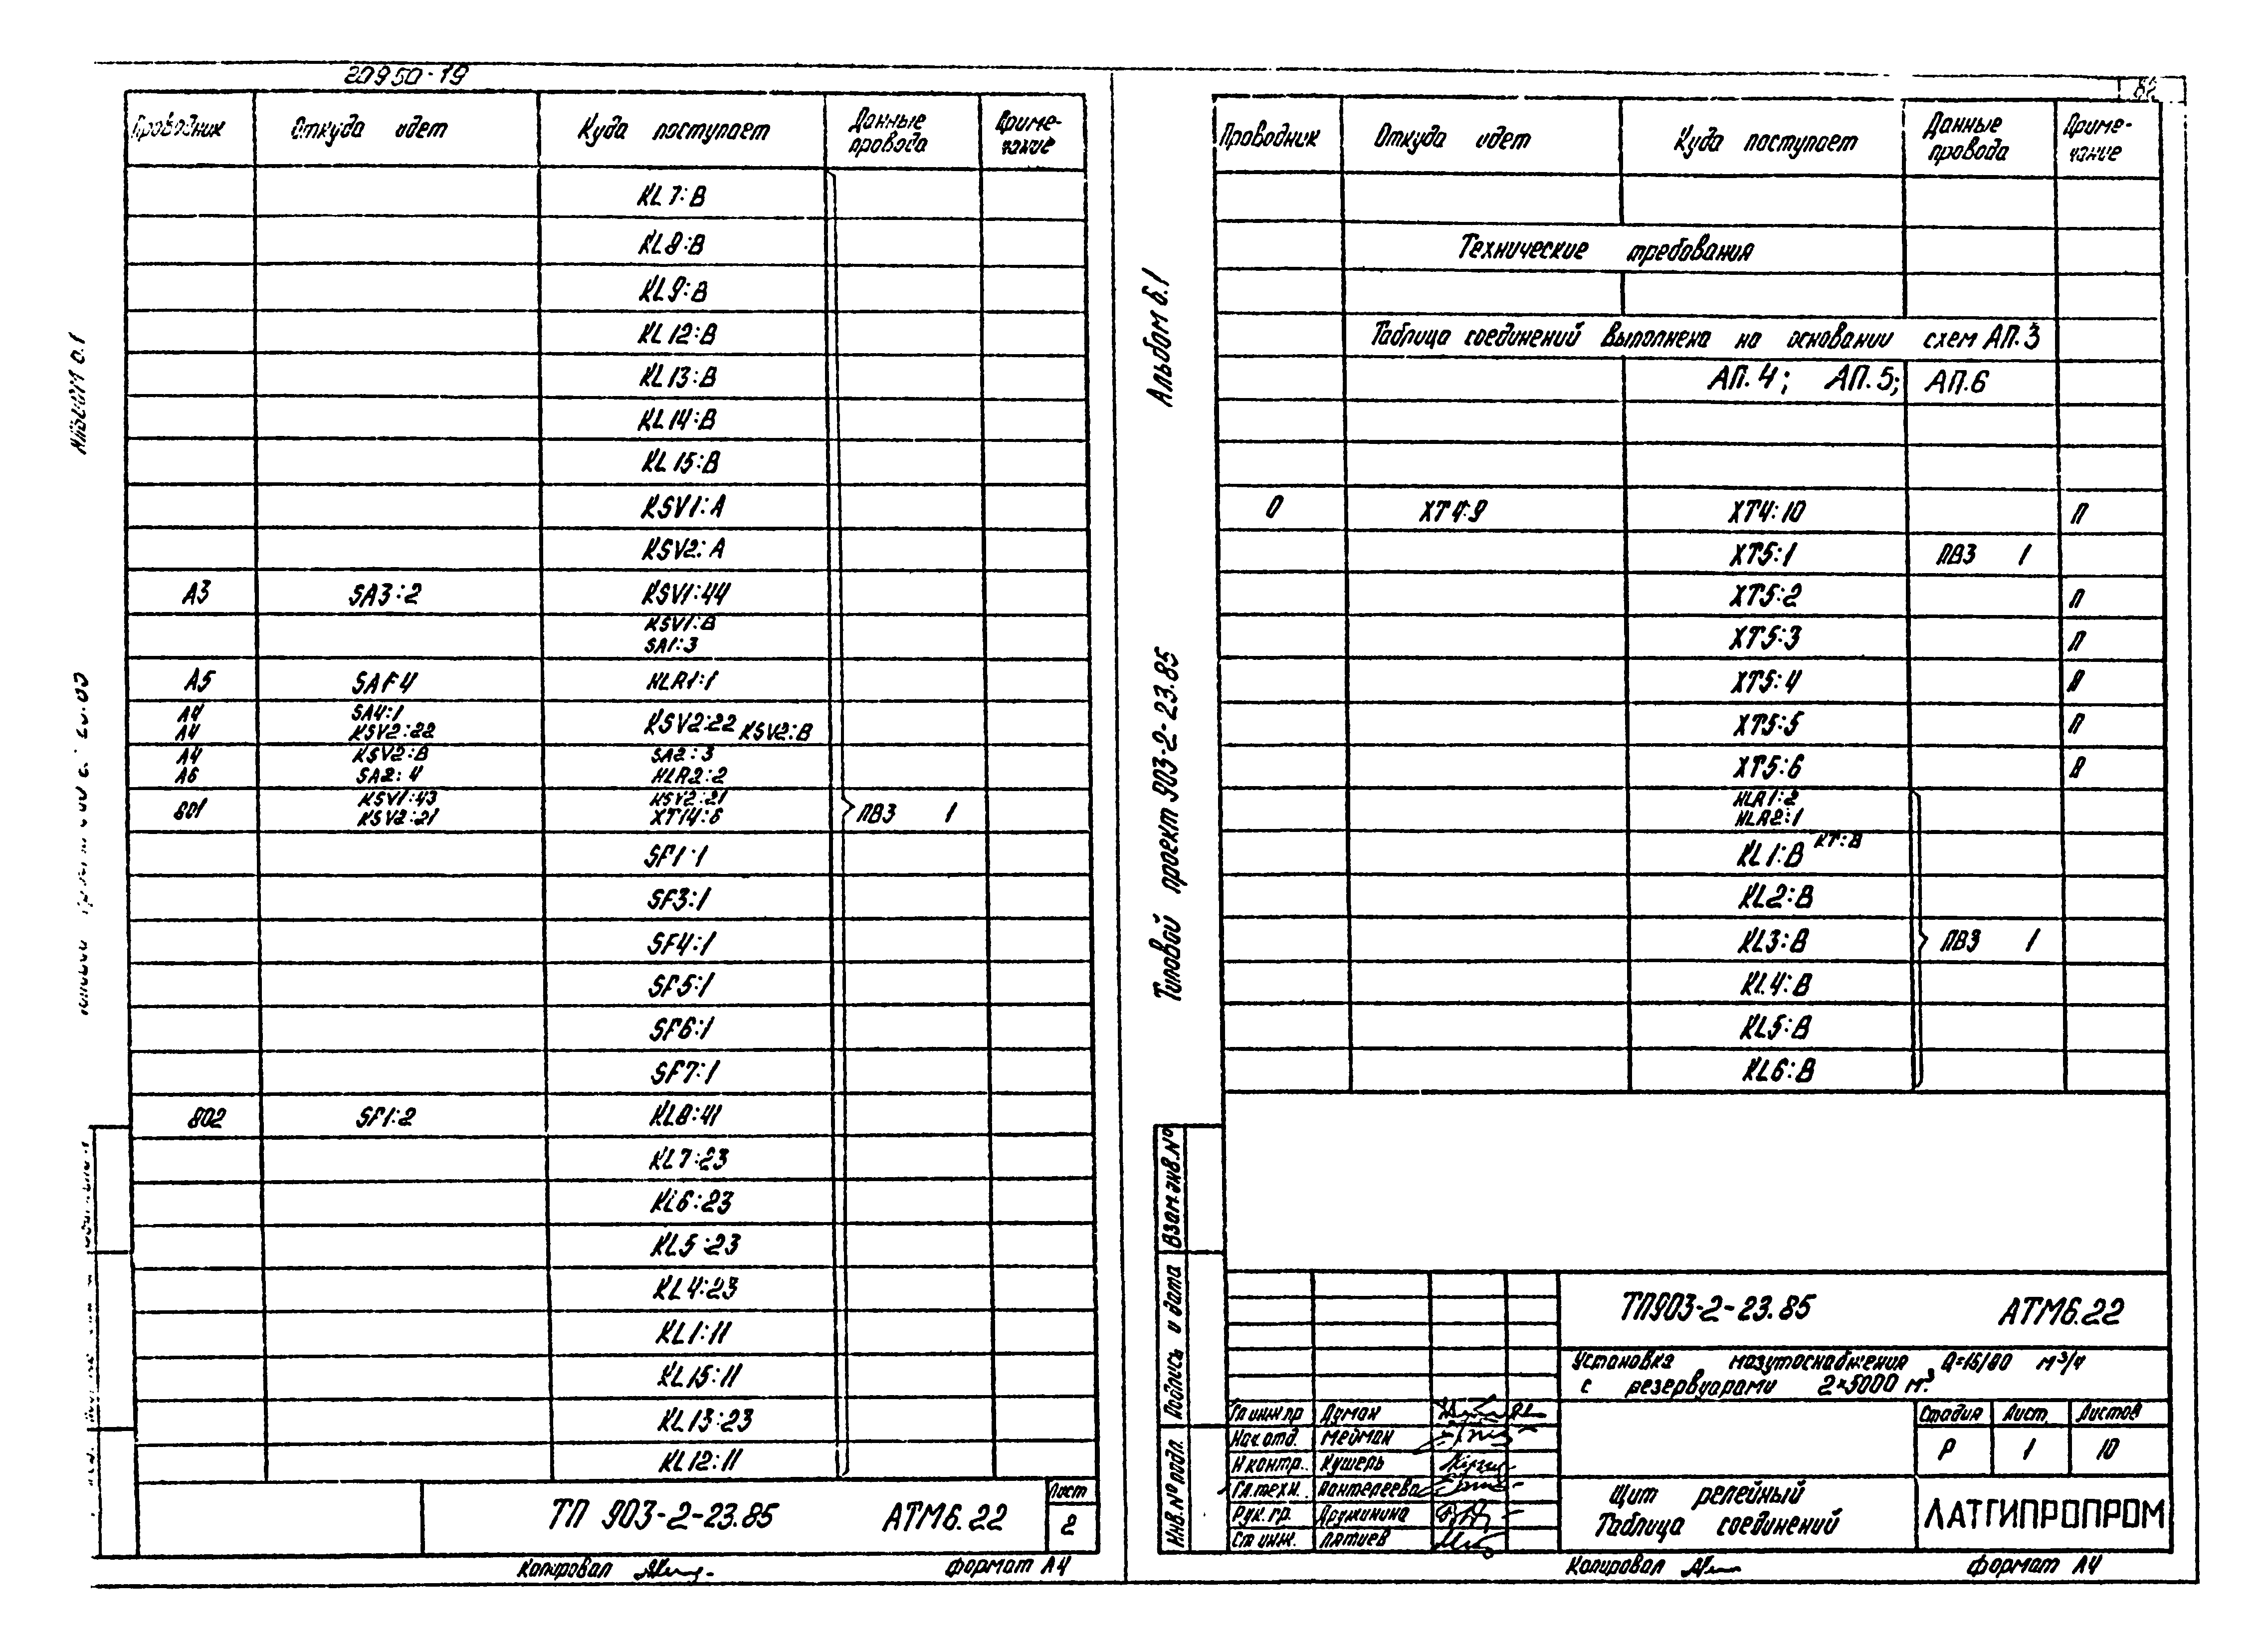 20950-19
Проводник Откуда идет Куда поступает Данные провода Примечание
KL7:B
KL8:B
KL9:B
KL12:B
KL13:B
KL14:B
KL15:B
KSV1:A
KSV2:A
A3 SA3:2 KSV1:44
KSV1:B
SA1:3
A5 HLR1:1
A4 SA4:1 KSV2:22
A4 KSV2:22 KSV2:B
A4 KSV2:B SA2:3
A6 SA2:4 HLR2:2
801 KSV1:43 KSV2:21
KSV2:21 XT14:6 ПВ3 1
SF1:1
SF3:1
SF4:1
SF5:1
SF6:1
SF7:1
802 SF1:2 KL8:41
KL7:23
KL6:23
KL5:23
KL4:23
KL1:11
KL15:11
KL13:23
KL12:11
ТП 903-2-23.85 АТМ6.22 Лист 2
Копировал формат А4
82
Альбом 6.1
Типовой проект 903-2-23.85
Проводник Откуда идет Куда поступает Данные провода Примечание
Технические требования
Таблица соединений выполнена на основании схем АП.3
АП.4; АП.5; АП.6
0 XT4:9 XT4:10 П
XT5:1 ПВ3 1
XT5:2 П
XT5:3 П
XT5:4 П
XT5:5 П
XT5:6 П
HLR1:2
HLR2:1
KL1:B KT:B
KL2:B
KL3:B ПВ3 1
KL4:B
KL5:B
KL6:B
Взам.инв.№
Подпись и дата
Инв.№ подл.
ТП903-2-23.85 АТМ6.22
Установка мазутоснабжения Q=15/80 м³/ч
с резервуарами 2×5000 м³
Гл инж пр Думан
Нач.отд. Мейман
Н контр. Кушерь
Гл.техн. Пантелеева
Рук.гр. Дружинина
Ст инж. Лятиев
Стадия Лист Листов
Р 1 10
Щит релейный
Таблица соединений
ЛАТГИПРОПРОМ
Копировал формат А4